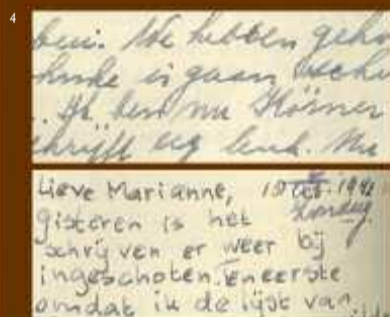 4
ben. We hebben geho
is gaan
Ik ben nu Körner
schrijft erg leuk. Nu
Lieve Marianne, 10 Oct. 194
Zondag
gisteren is het
schrijven er weer bij
ingeschoten. Ten eerste
omdat ik de lijst van